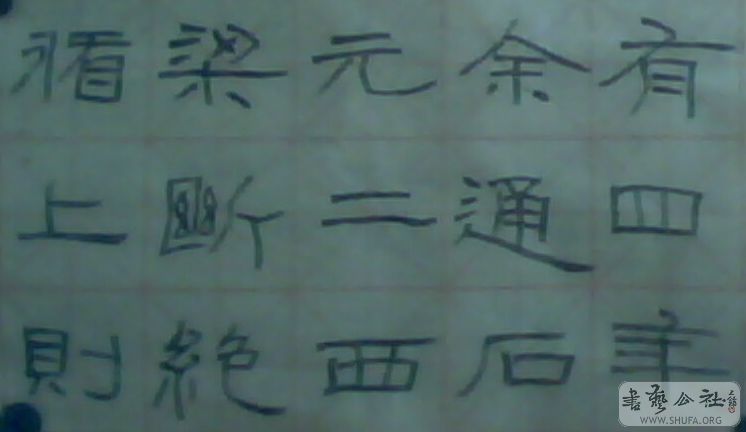 有四年
余通石
元二西
梁斷絕
循上則
書藝公社
WWW.SHUFA.ORG